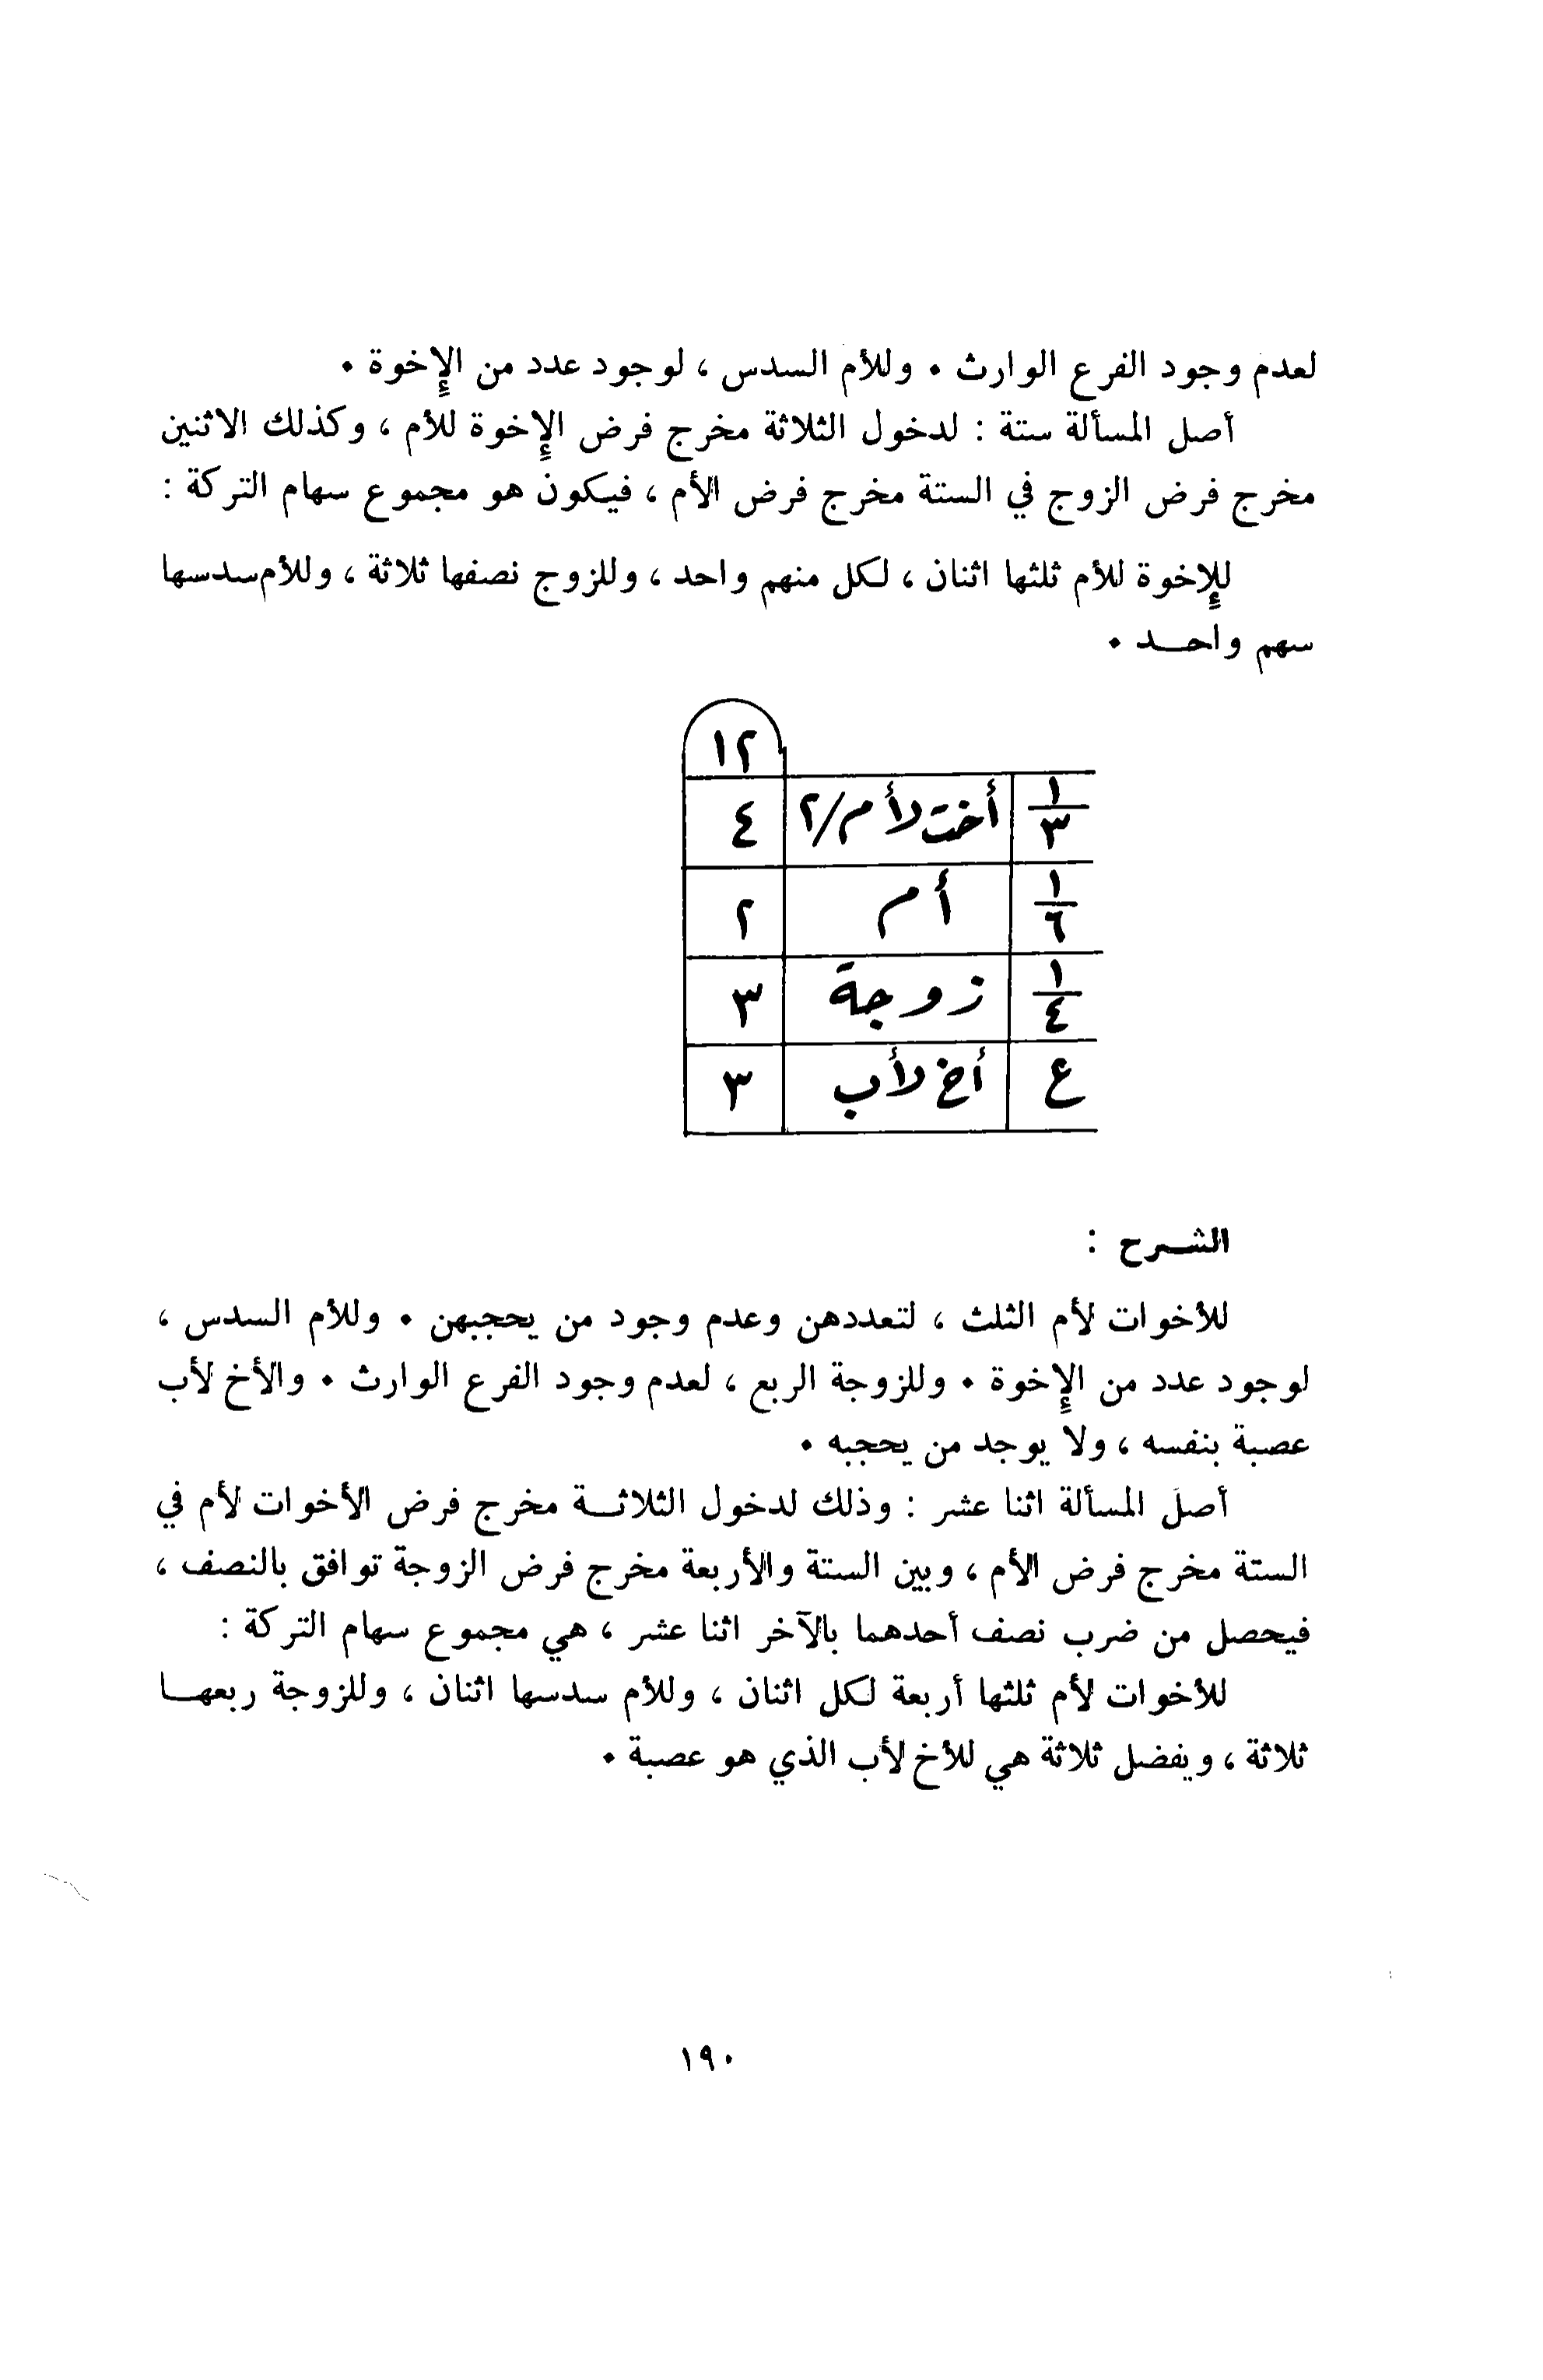 لعدم وجود الفرع الوارث ٠ وللأم السدس ، لوجود عدد من الإخوة ٠
أصل المسألة ستة : لدخول الثلاثة مخرج فرض الإخوة للأم ، وكذلك الاثنين
مخرج فرض الزوج في الستة مخرج فرض الأم ، فيكون هو مجموع سهام التركة :
للإخوة للأم ثلثها اثنان ، لكل منهم واحد ، وللزوج نصفها ثلاثة ، وللأم سدسها
سهم واحــد ٠
١٢
١/٣ أخت لأم/٢ ٤
١/٦ أم ٢
١/٤ زوجة ٣
ع أخ لأب ٣
الشــرح :
للأخوات لأم الثلث ، لتعددهن وعدم وجود من يحجبهن ٠ وللأم السدس ،
لوجود عدد من الإخوة ٠ وللزوجة الربع ، لعدم وجود الفرع الوارث ٠ والأخ لأب
عصبة بنفسه ، ولا يوجد من يحجبه ٠
أصل المسألة اثنا عشر : وذلك لدخول الثلاثــة مخرج فرض الأخوات لأم في
الستة مخرج فرض الأم ، وبين الستة والأربعة مخرج فرض الزوجة توافق بالنصف ،
فيحصل من ضرب نصف أحدهما بالآخر اثنا عشر ، هي مجموع سهام التركة :
للأخوات لأم ثلثها أربعة لكل اثنان ، وللأم سدسها اثنان ، وللزوجة ربعهــا
ثلاثة ، ويفضل ثلاثة هي للأخ لأب الذي هو عصبة ٠
١٩٠